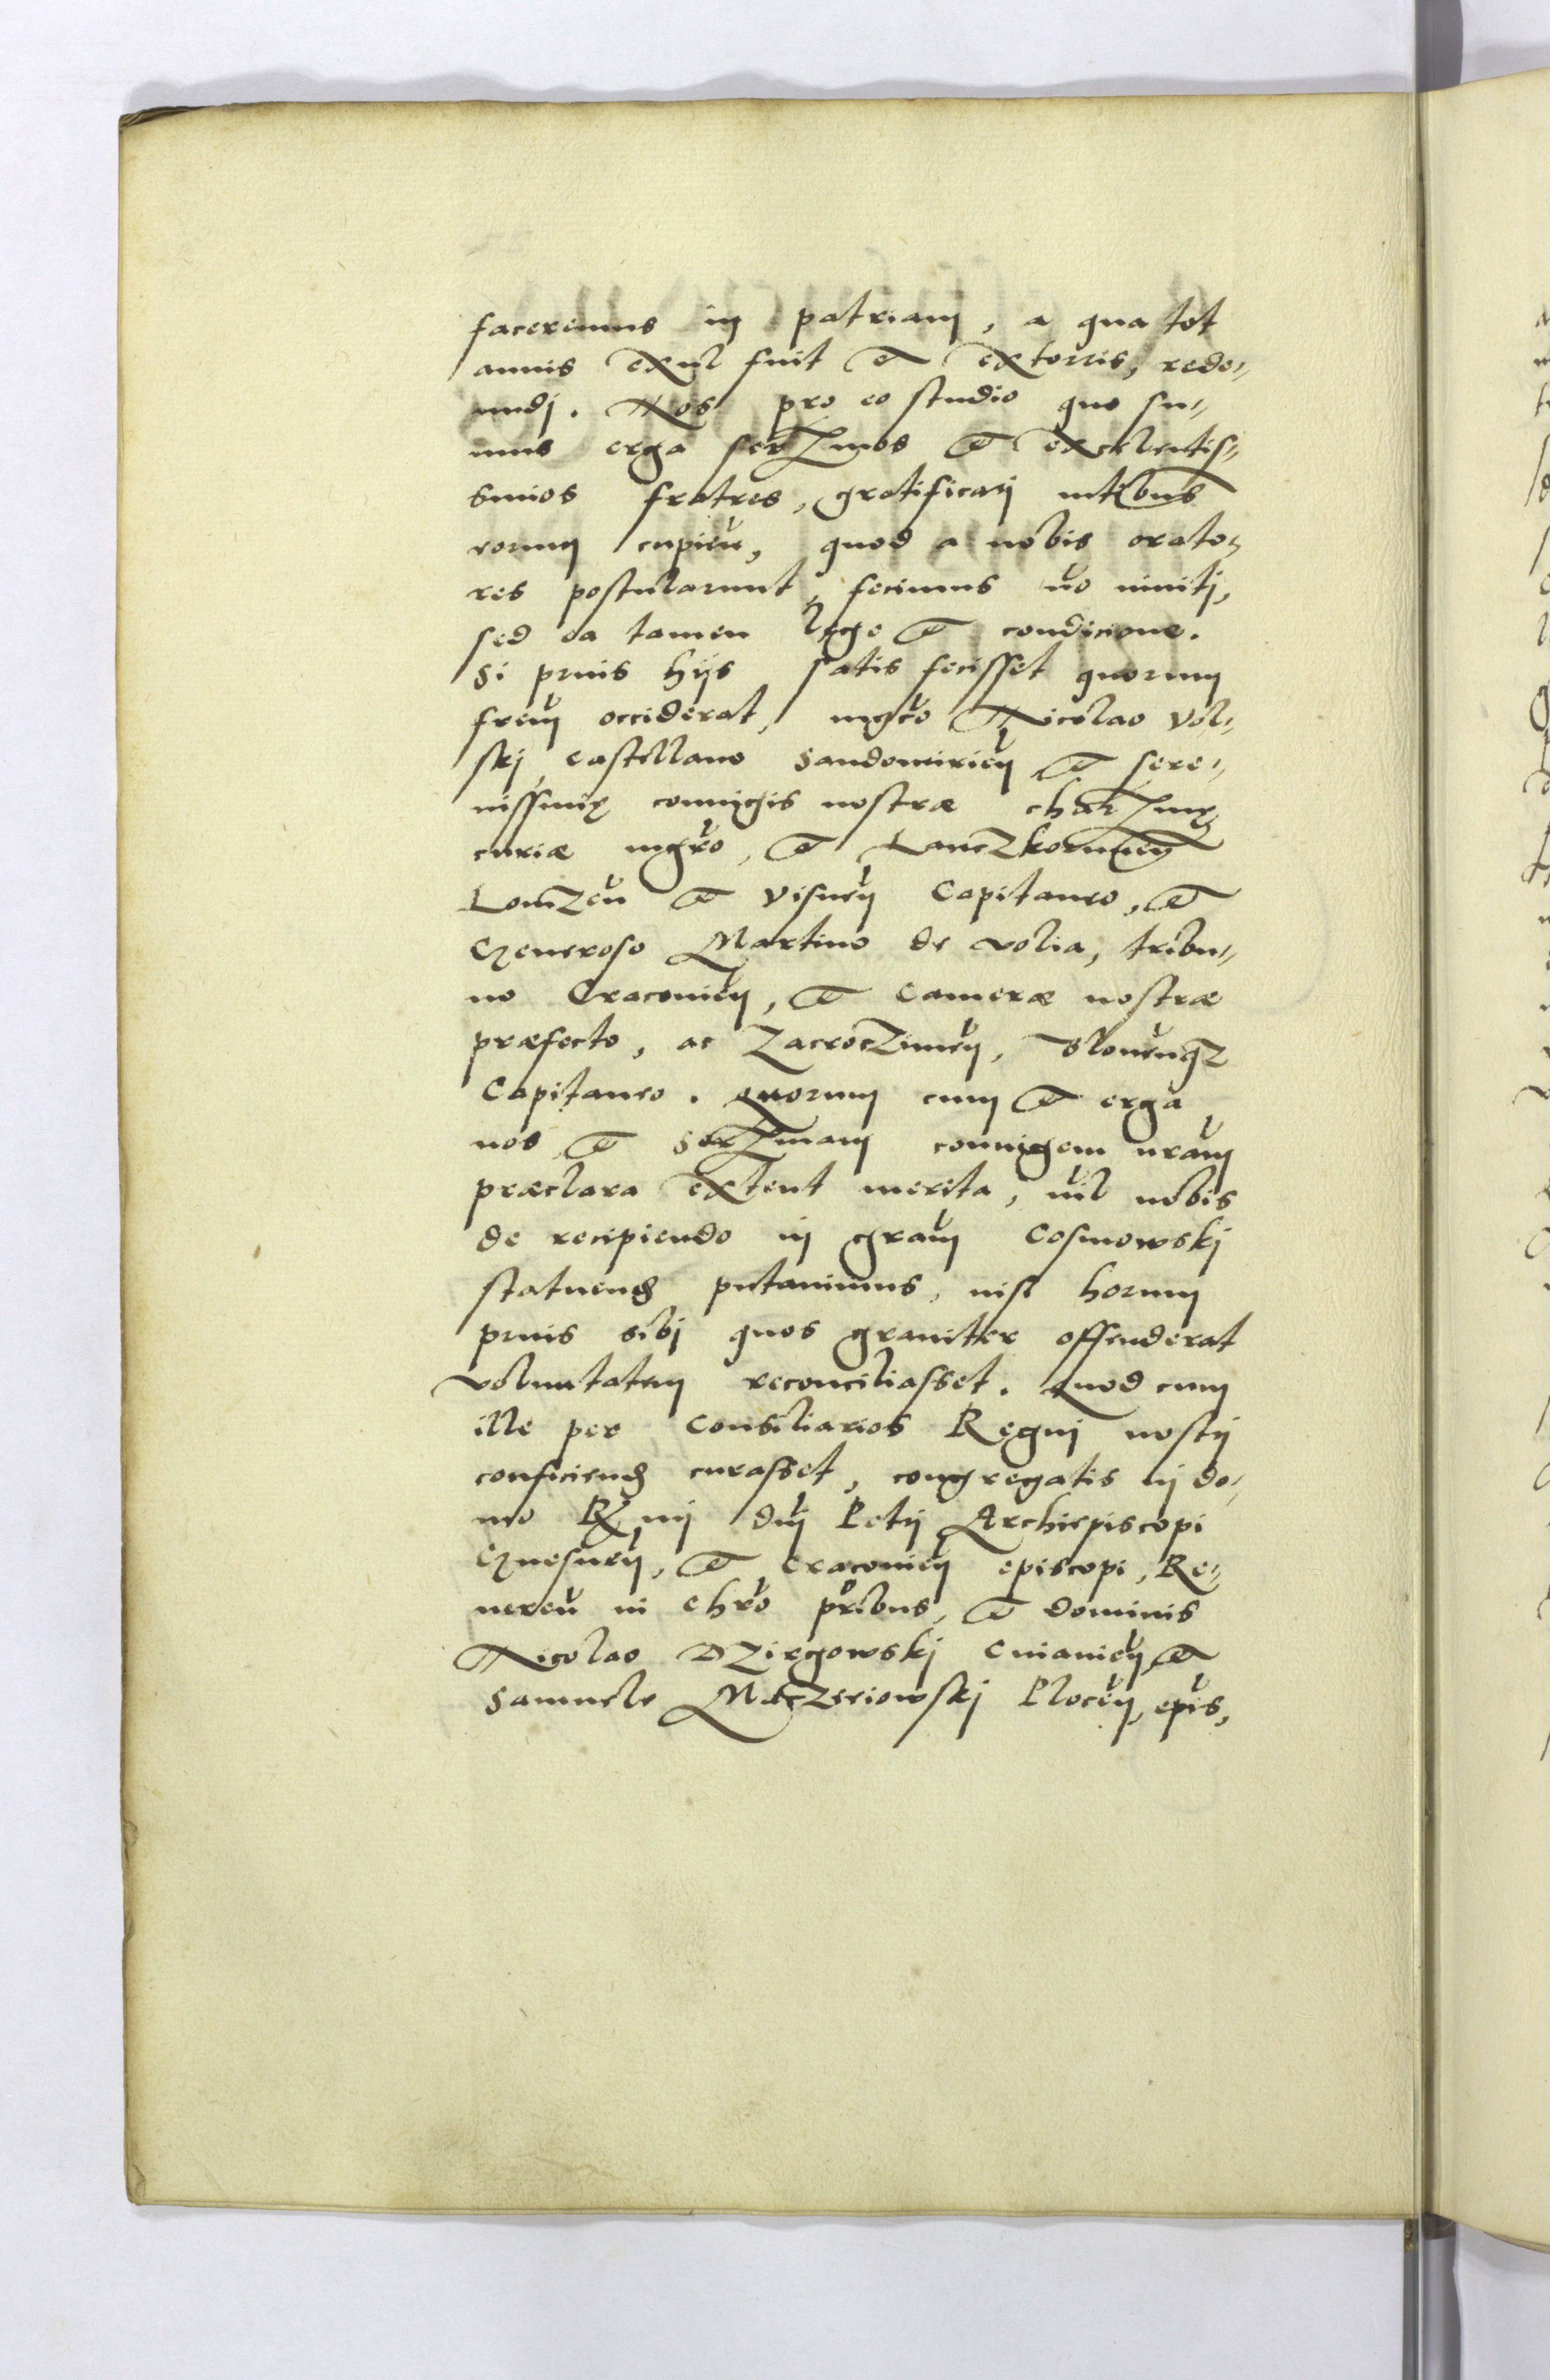 faceremus in patriam, a qua tot
annis exul fuit et extorris, rede-
undj. Nos pro eo studio quo su-
mus erga serᵐos et excelentis-
simos fratres, gratificarj
eorum cupien, quod a nobis orato-
res postularunt, fecimus no inuitj,
sed ea tamen lege et condicione.
Si prius hijs satis fecisset quorum
frem occiderat, mgco Nicolao Vol-
skj castellano Sandomirien et sere-
nissimę coniugis nostræ charᵐę
curiæ mgro, et Lanczkorunen
Lomzen et Visnen Capitaneo, et
Generoso Martino de Volia, tribu-
no Cracouien, et Cameræ nostræ
præfecto, ac Zacroczimen,
Capitaneo. Quorum cum et erga
nos et Serᵐam coniugem nram
præclara extent merita, nil nobis
de recipiendo in gram Cosmowskj
statuend putauimus, nisi horum
prius sibj quos grauiter offenderat
voluntatem reconciliasset. Quod cum
ille per Consiliarios Regnj nostrj
conficiend curasset, congregatis in do-
mo Rᵐi dnj Petrj Archiepiscopi
Gnesnen, et Cracouien episcopi, Re-
ueren in Chro pribus, et dominis
Nicolao Dzirgowskj Cuiauien et
Samuele Maczeiowskj Plocen, epis,